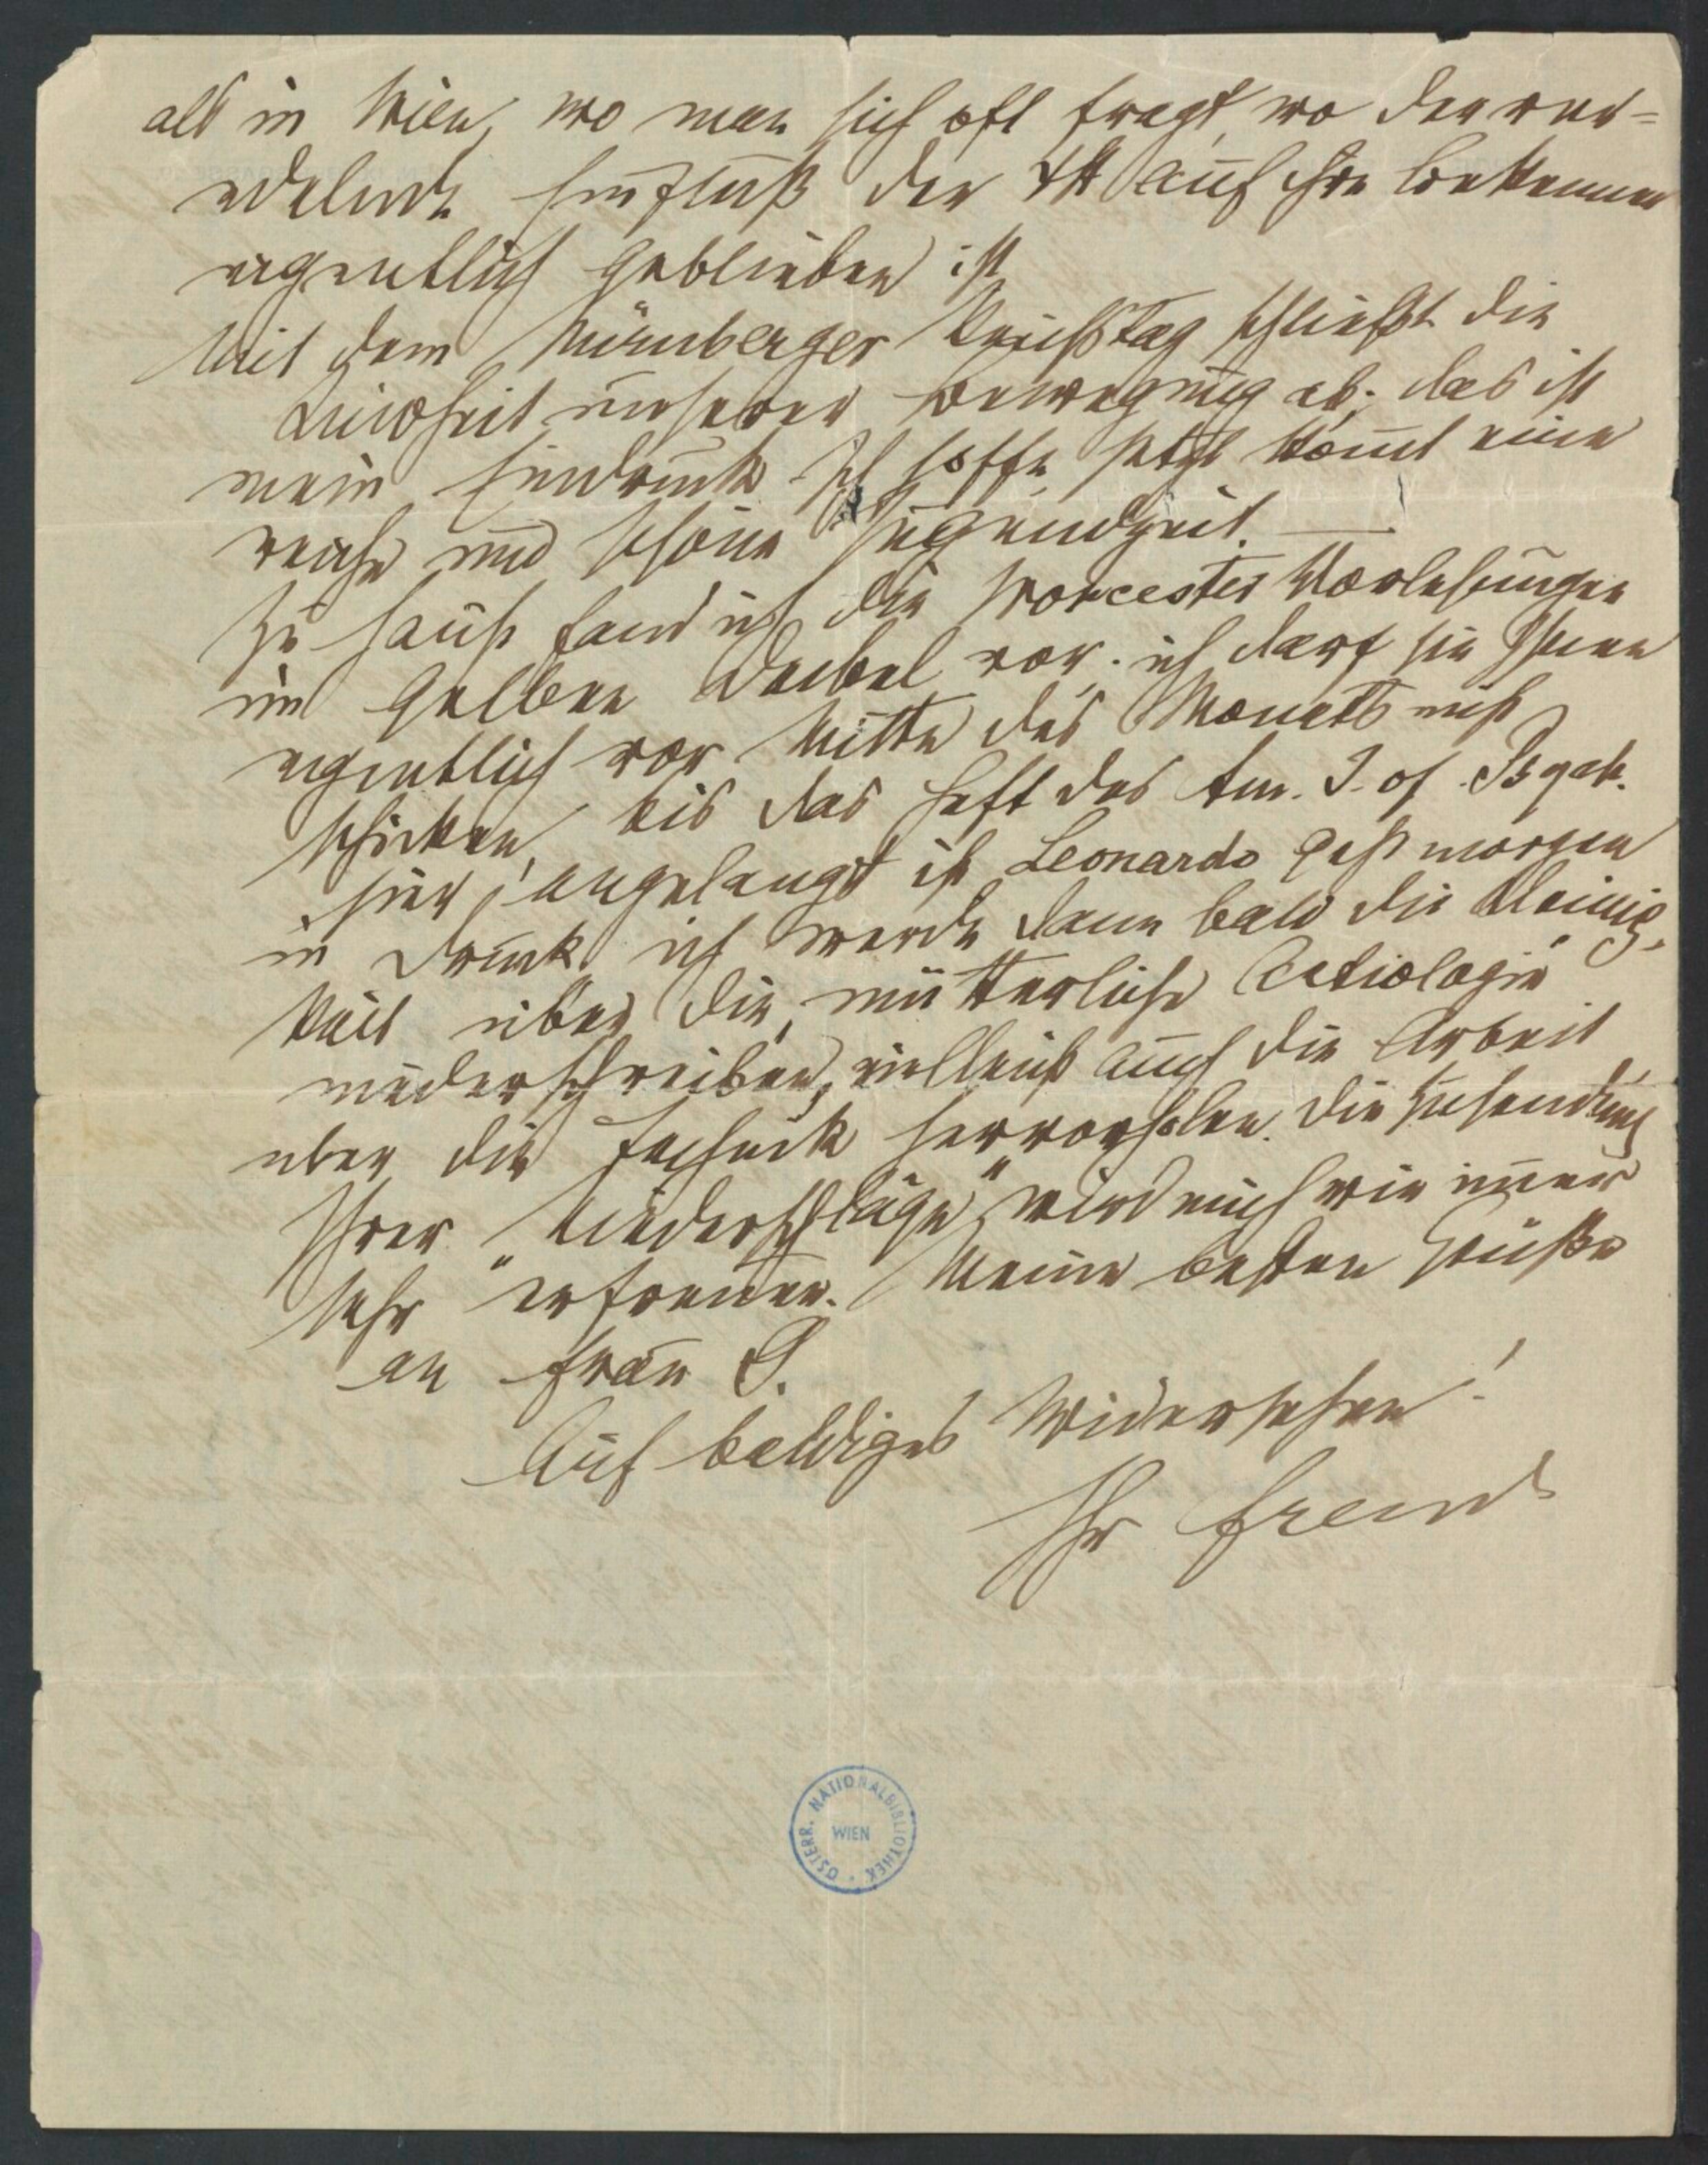 als in Wien, wo man sich oft fragt, wo der ver-
edelnde Einfluß der ΨΑ auf ihre Bekenner
eigentlich geblieben ist.
Mit dem Nürnberger Reichstag schließt die
Kindheit unserer Bewegung ab; das ist
mein Eindruck. Ich hoffe, jetzt kom̄t eine
reiche und schöne Jugendzeit. —
Zu Hause fand ich die Worcester Vorlesungen
im gelben vor; ich darf sie Ihnen
eigentlich vor Mitte des Monats nicht
schicken, bis das Heft des Am. J. of Psych.
hier angelangt ist. Leonardo geht morgen
in Druck, ich werde dann bald die Kleinig-
keit über die „mütterliche Aetiologie"
niederschreiben, vielleicht auch die Arbeit
über die Technik hervorholen. Die Zusendung
Ihrer „Niederschläge" wird mich wie im̄er
sehr erfreuen. Meine besten Grüße
an Frau G.
Auf baldiges Wiedersehen!
Ihr Freud
ÖSTERR. NATIONALBIBLIOTHEK
WIEN